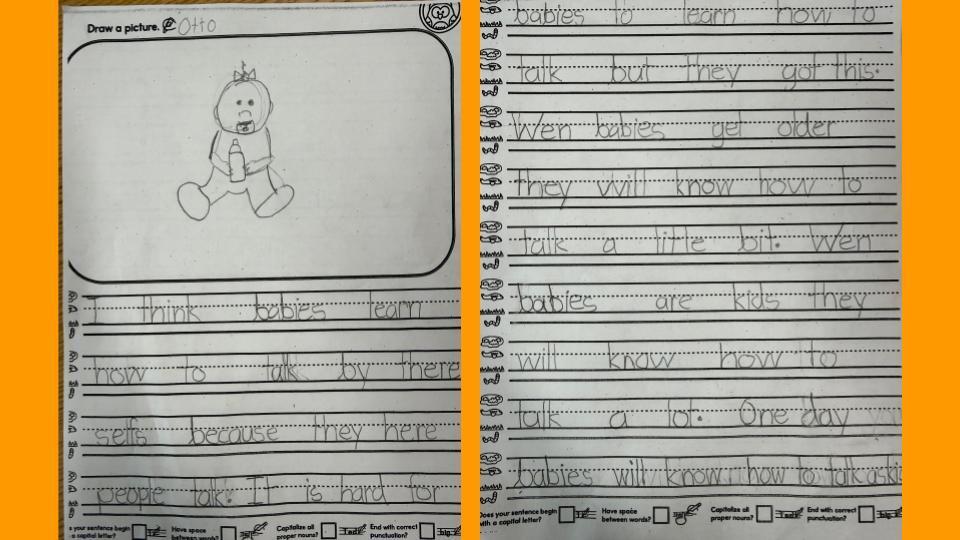 Draw a picture. Otto
I think babies learn
how to talk by there
selfs because they here
people talk! It is hard for
s your sentence begin
a capital letter?
Have space
between words?
Capitalize all
proper nouns?
End with correct
punctuation?
babies to learn how to
talk but they got this.
Wen babies get older
they will know how to
talk a little bit. Wen
babies are kids they
will know how to
talk a lot. One day
babies will know how to talk
Does your sentence begin
with a capital letter?
Have space
between words?
Capitalize all
proper nouns?
End with correct
punctuation?